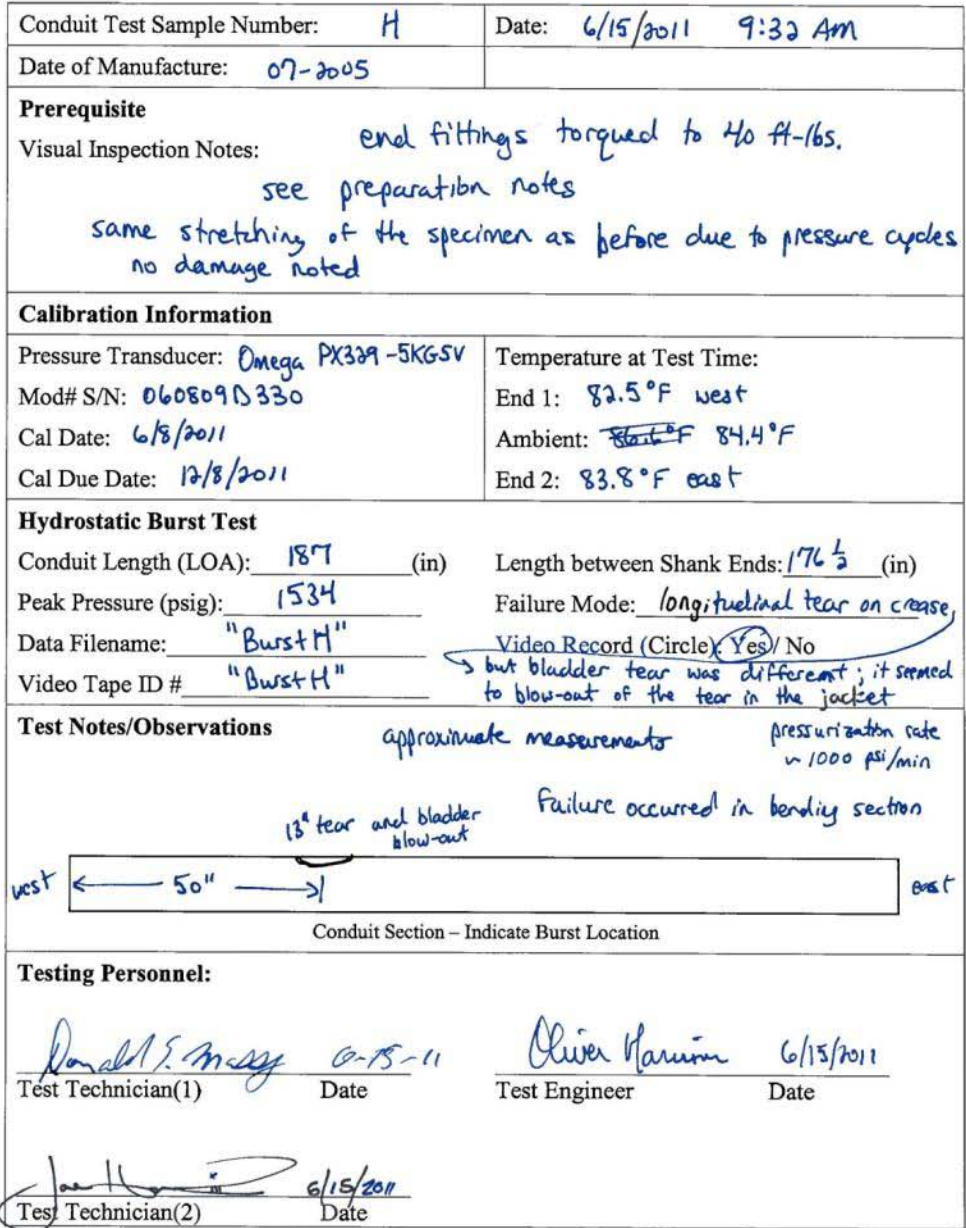 Conduit Test Sample Number: H Date: 6/15/2011 9:32 AM
Date of Manufacture: 07-2005
Prerequisite
Visual Inspection Notes: end fittings torqued to 40 ft-lbs.
see preparation notes
same stretching of the specimen as before due to pressure cycles
no damage noted
Calibration Information
Pressure Transducer: Omega PX329-5KG5V
Mod# S/N: 060809D330
Cal Date: 6/8/2011
Cal Due Date: 12/8/2011
Temperature at Test Time:
End 1: 82.5°F west
Ambient: 84.4°F
End 2: 83.8°F east
Hydrostatic Burst Test
Conduit Length (LOA): 187 (in) Length between Shank Ends: 176 1/2 (in)
Peak Pressure (psig): 1534 Failure Mode: longitudinal tear on crease,
Data Filename: "BurstH" Video Record (Circle): Yes / No
but bladder tear was different; it seemed
Video Tape ID # "BurstH" to blow-out of the tear in the jacket
Test Notes/Observations approximate measurements pressurization rate
~ 1000 psi/min
Failure occurred in bending section
13" tear and bladder
blow-out
west 50" east
Conduit Section – Indicate Burst Location
Testing Personnel:
Donald S. Massy 6-15-11 Oliver 6/15/2011
Test Technician(1) Date Test Engineer Date
6/15/2011
Test Technician(2) Date